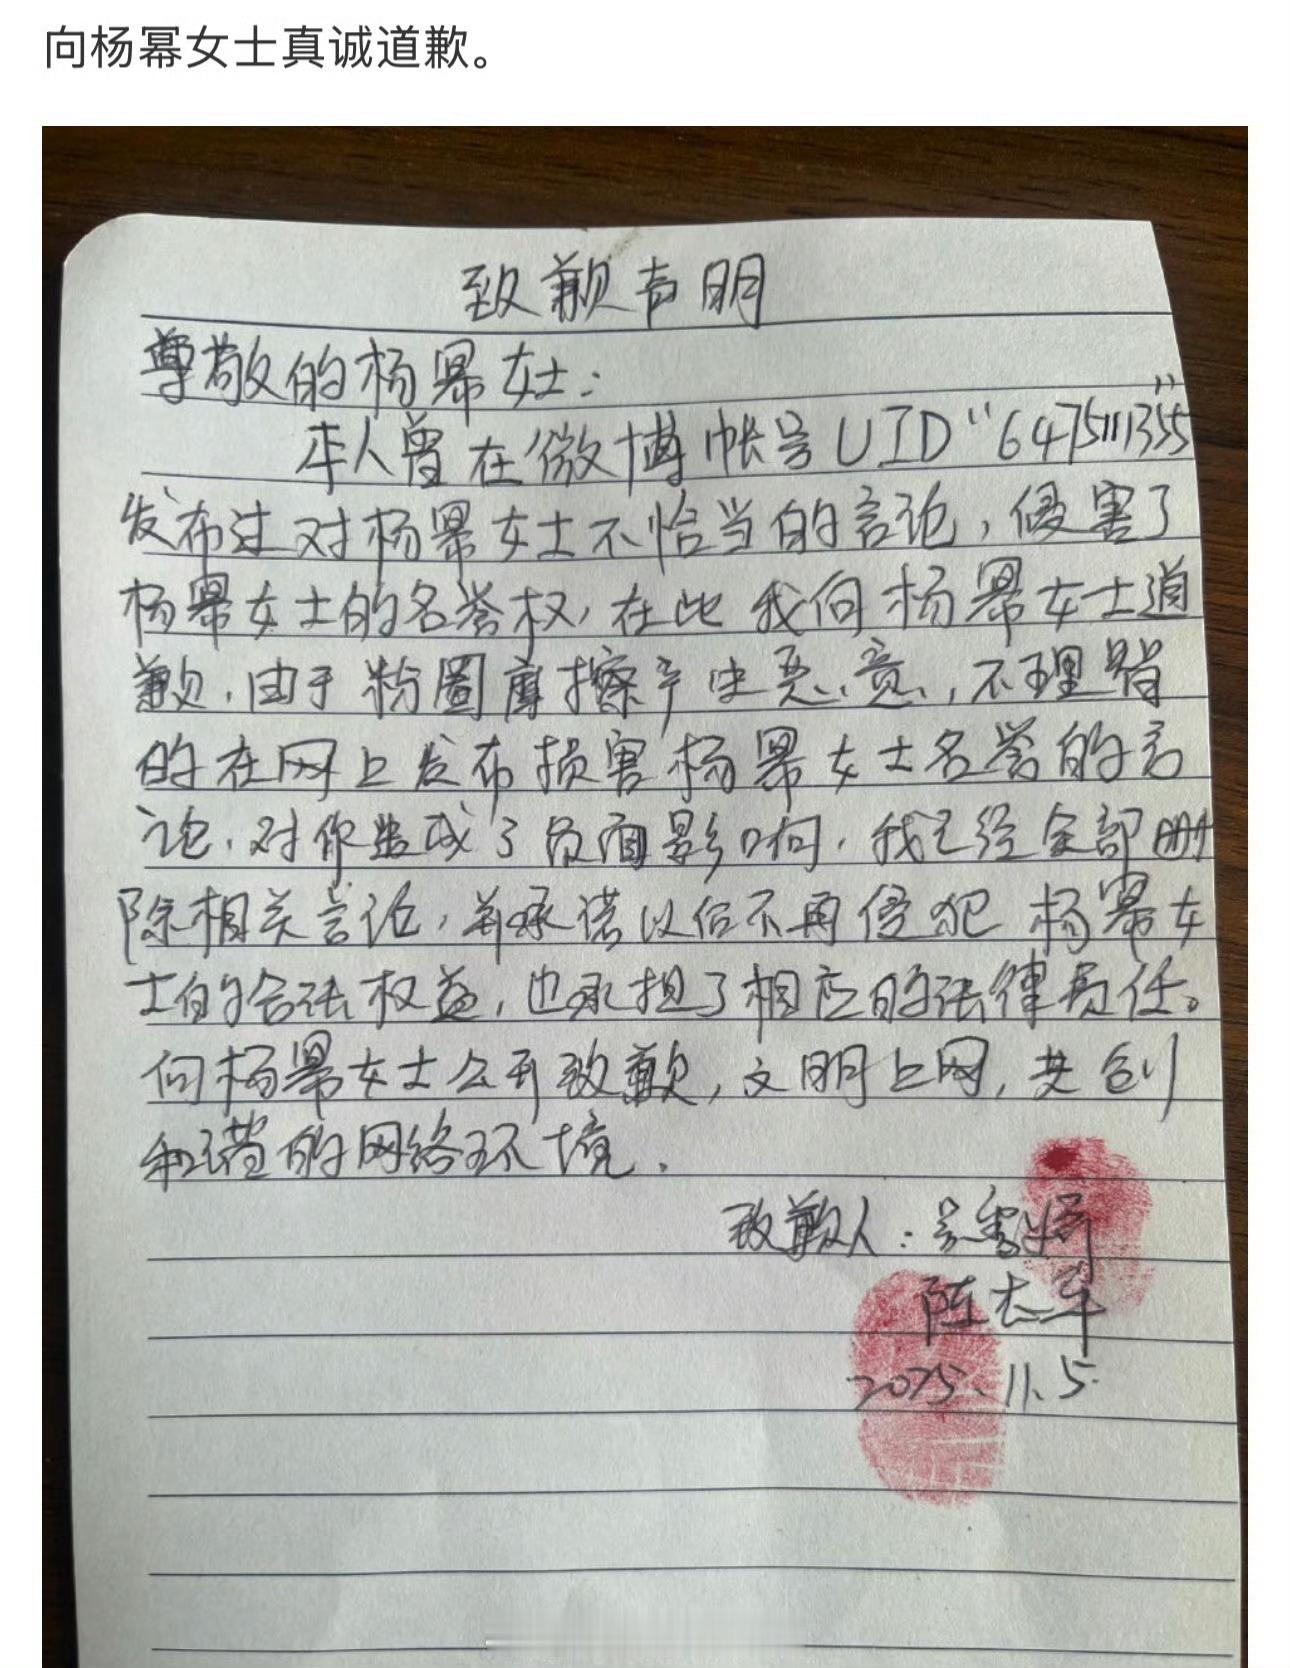 向杨幂女士真诚道歉。
致歉声明
尊敬的杨幂女士：
本人曾在微博帐号UID"6475111355"
发布过对杨幂女士不恰当的言论，侵害了
杨幂女士的名誉权，在此我向杨幂女士道
歉，由于粉圈摩擦产生恶意，不理智
的在网上发布损害杨幂女士名誉的言
论，对你造成了负面影响，我已经全部删
除相关言论，并承诺以后不再侵犯杨幂女
士的合法权益，也承担了相应的法律责任。
向杨幂女士公开致歉，文明上网，共创
和谐的网络环境．
致歉人：吴雪娇
陈志军
2025.11.5